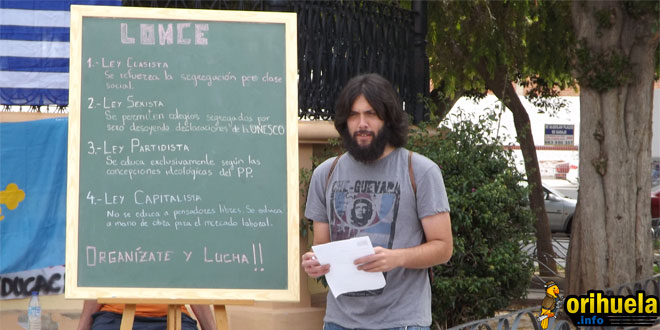 LOMCE
1.- LEY CLASISTA
Se refuerza la segregación por clase
social.
2.- LEY SEXISTA
Se permiten colegios segregados por
sexo desoyendo declaraciones de la UNESCO
3.- LEY PARTIDISTA
Se educa exclusivamente según las
concepciones ideológicas del PP.
4.- LEY CAPITALISTA
No se educa a pensadores libres. Se educa
a mano de obra para el mercado laboral.
ORGANÍZATE Y LUCHA!!
CHE-GUEVARA
orihuela
.info